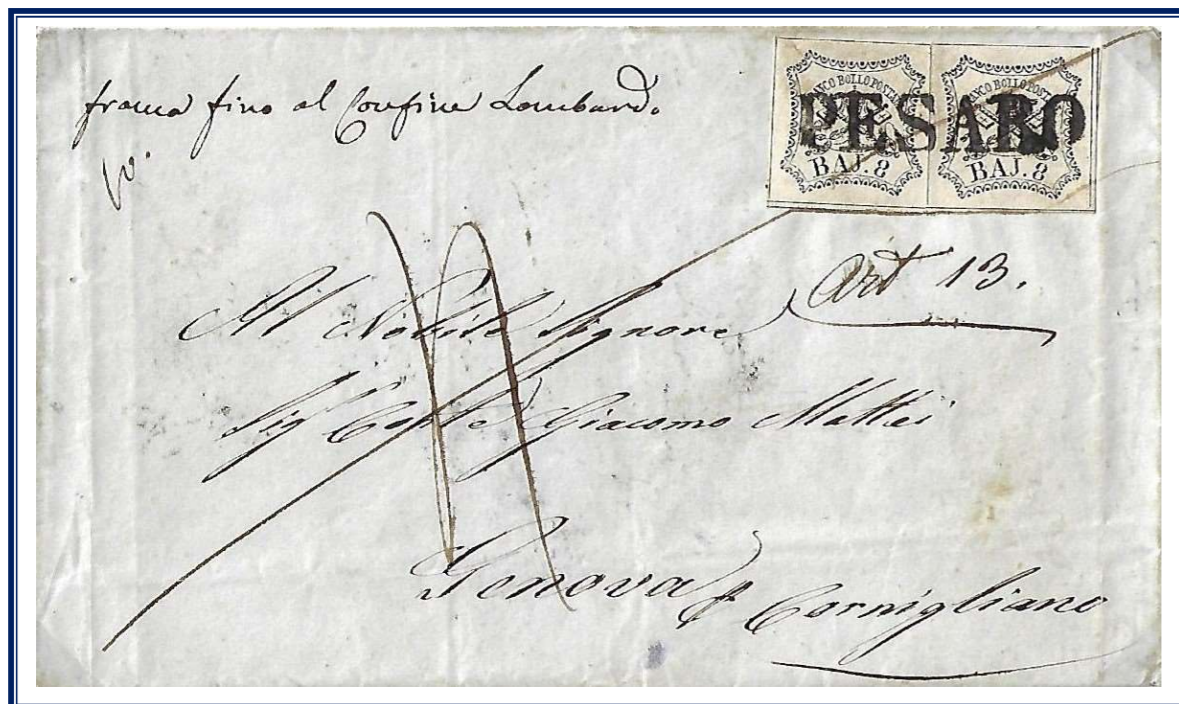 franca fino al Confine Lombardo
FRANCO BOLLO POSTALE
BAJ. 8
FRANCO BOLLO POSTALE
BAJ. 8
PESARO
Art 13.
Al Nobile Signore
Sig Conte Giacomo Mattei
Genova p Cornigliano